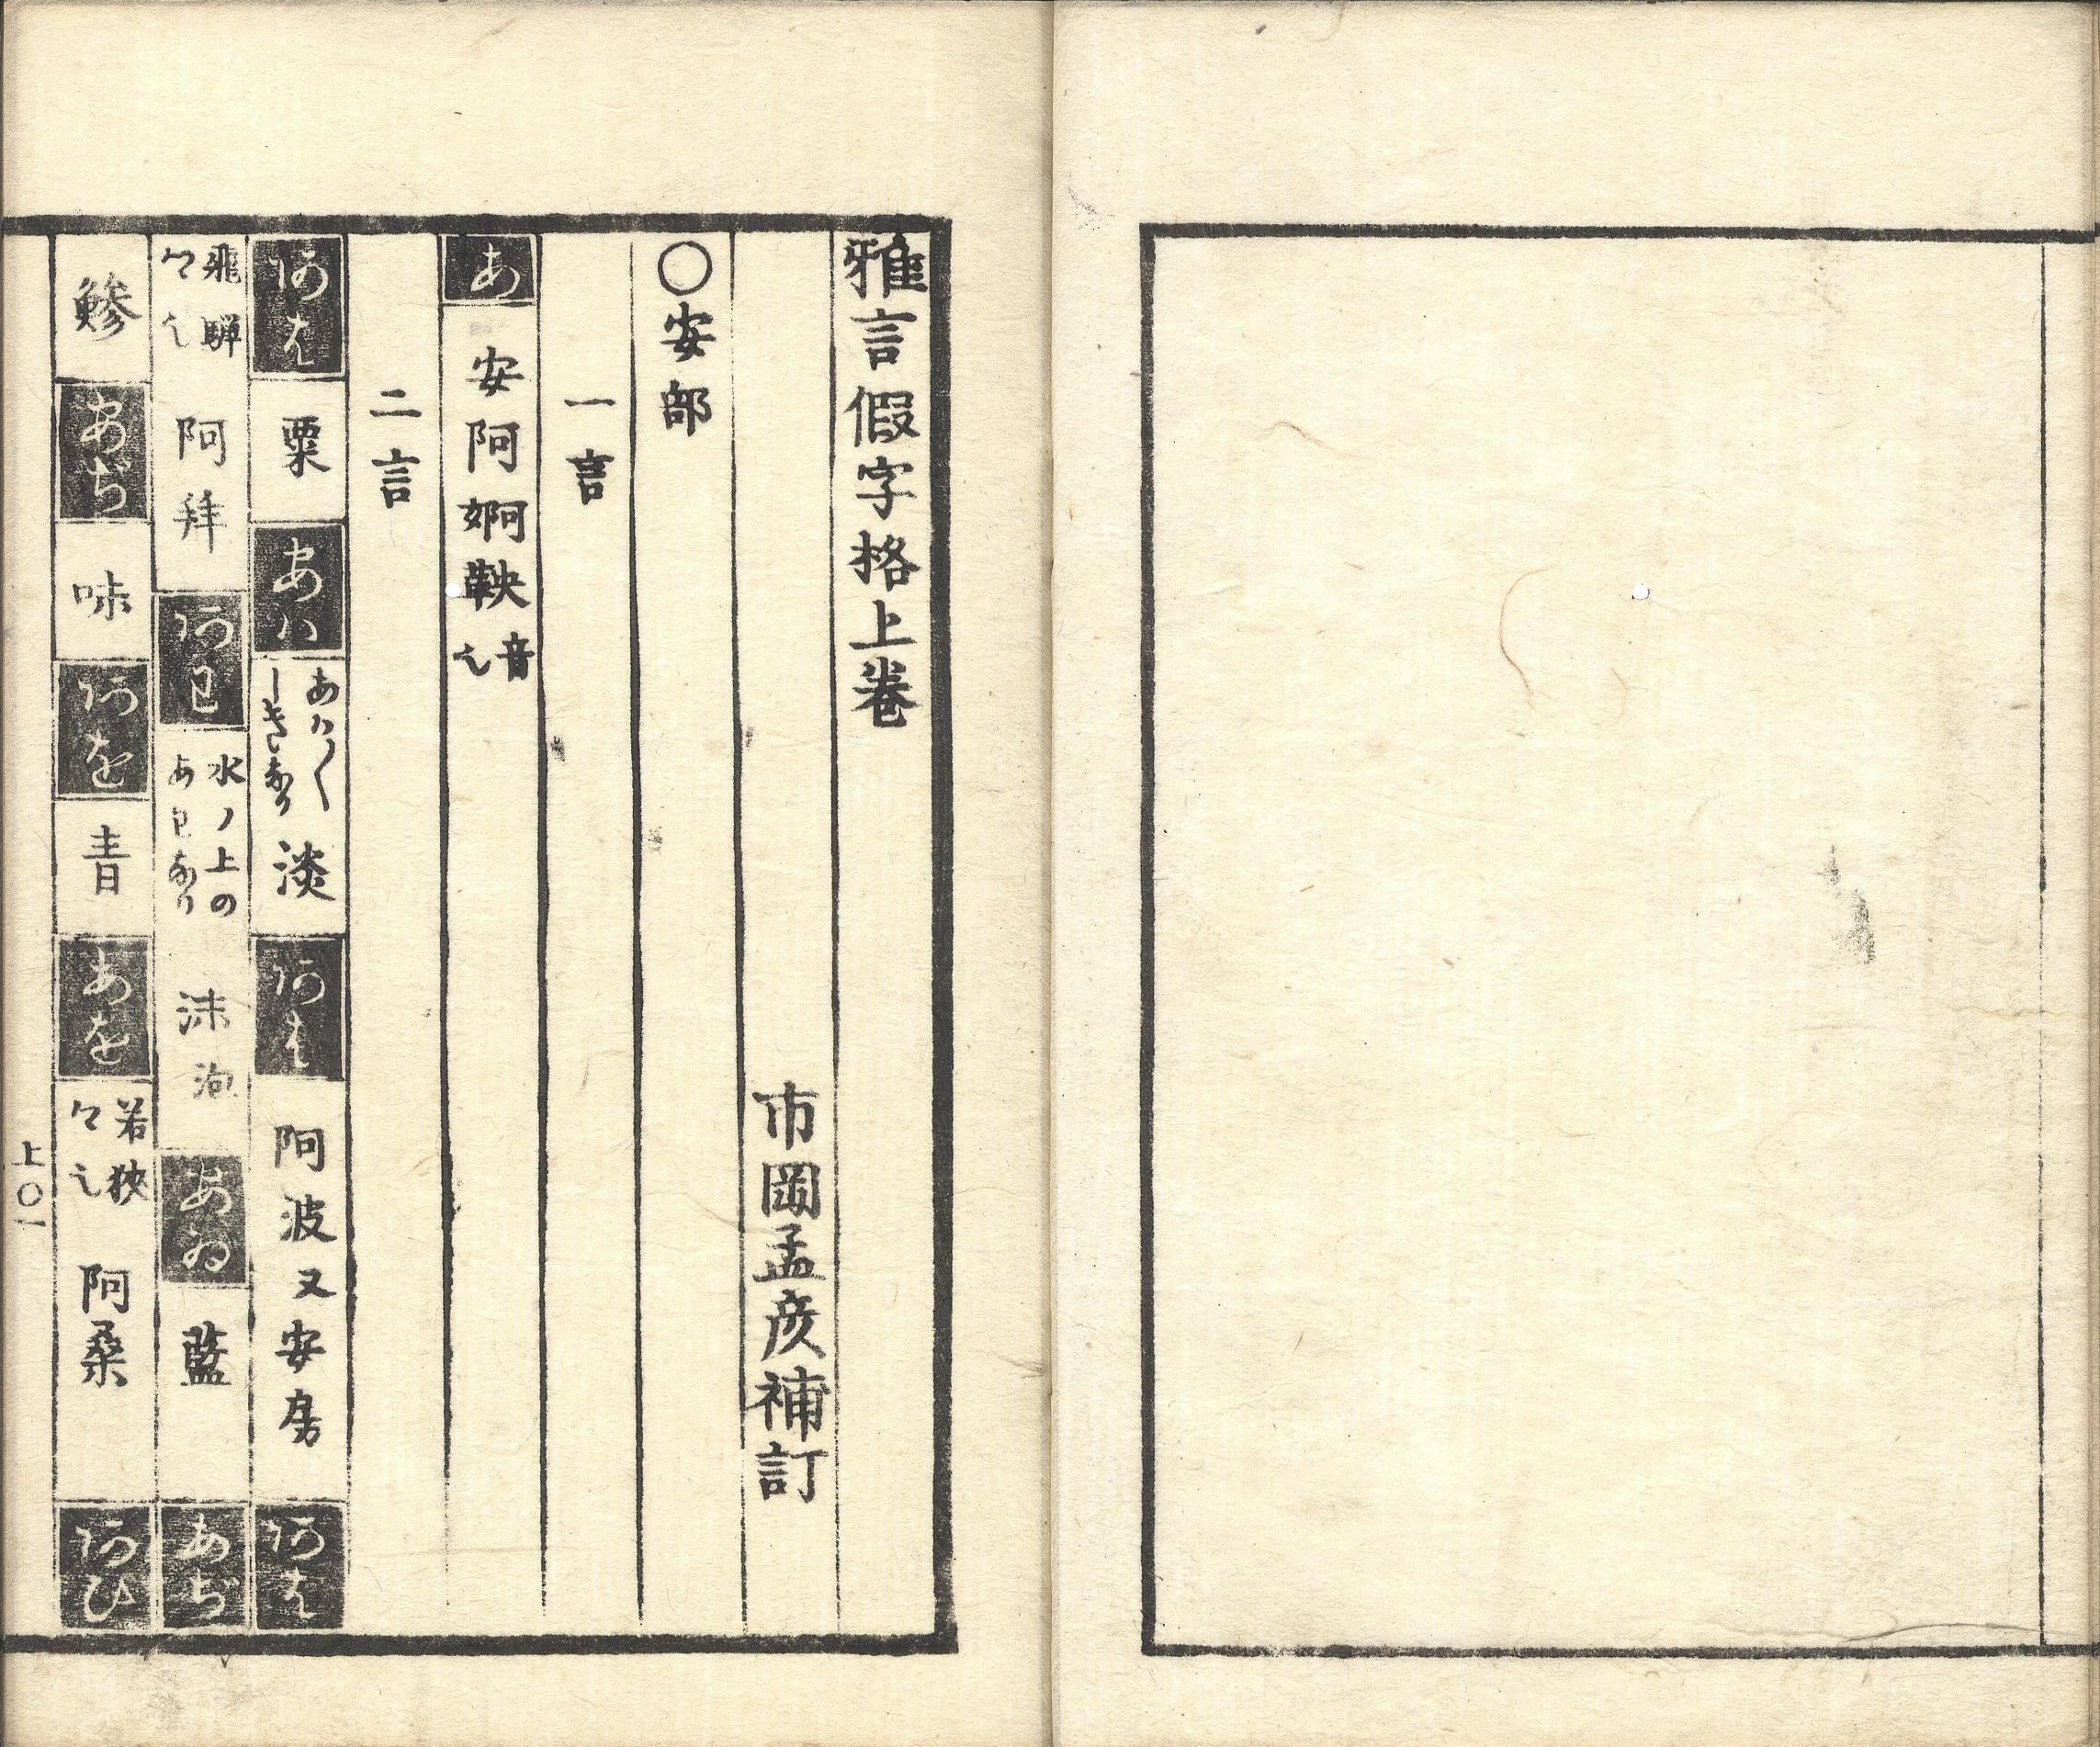 雅言假字格上巻
市岡孟彦補訂
〇安部
一言
あ 安阿婀鞅 音也
二言
あは 粟 あは あは〳〵しきなり 淡 あは 阿波又安房 あは
飛騨乡也 阿拝 あわ 水ノ上のあわなり 沫泡 あゐ 藍 あぢ
鰺 あぢ 味 あを 青 あを 若狭乡也 阿桑 あひ
上〇一